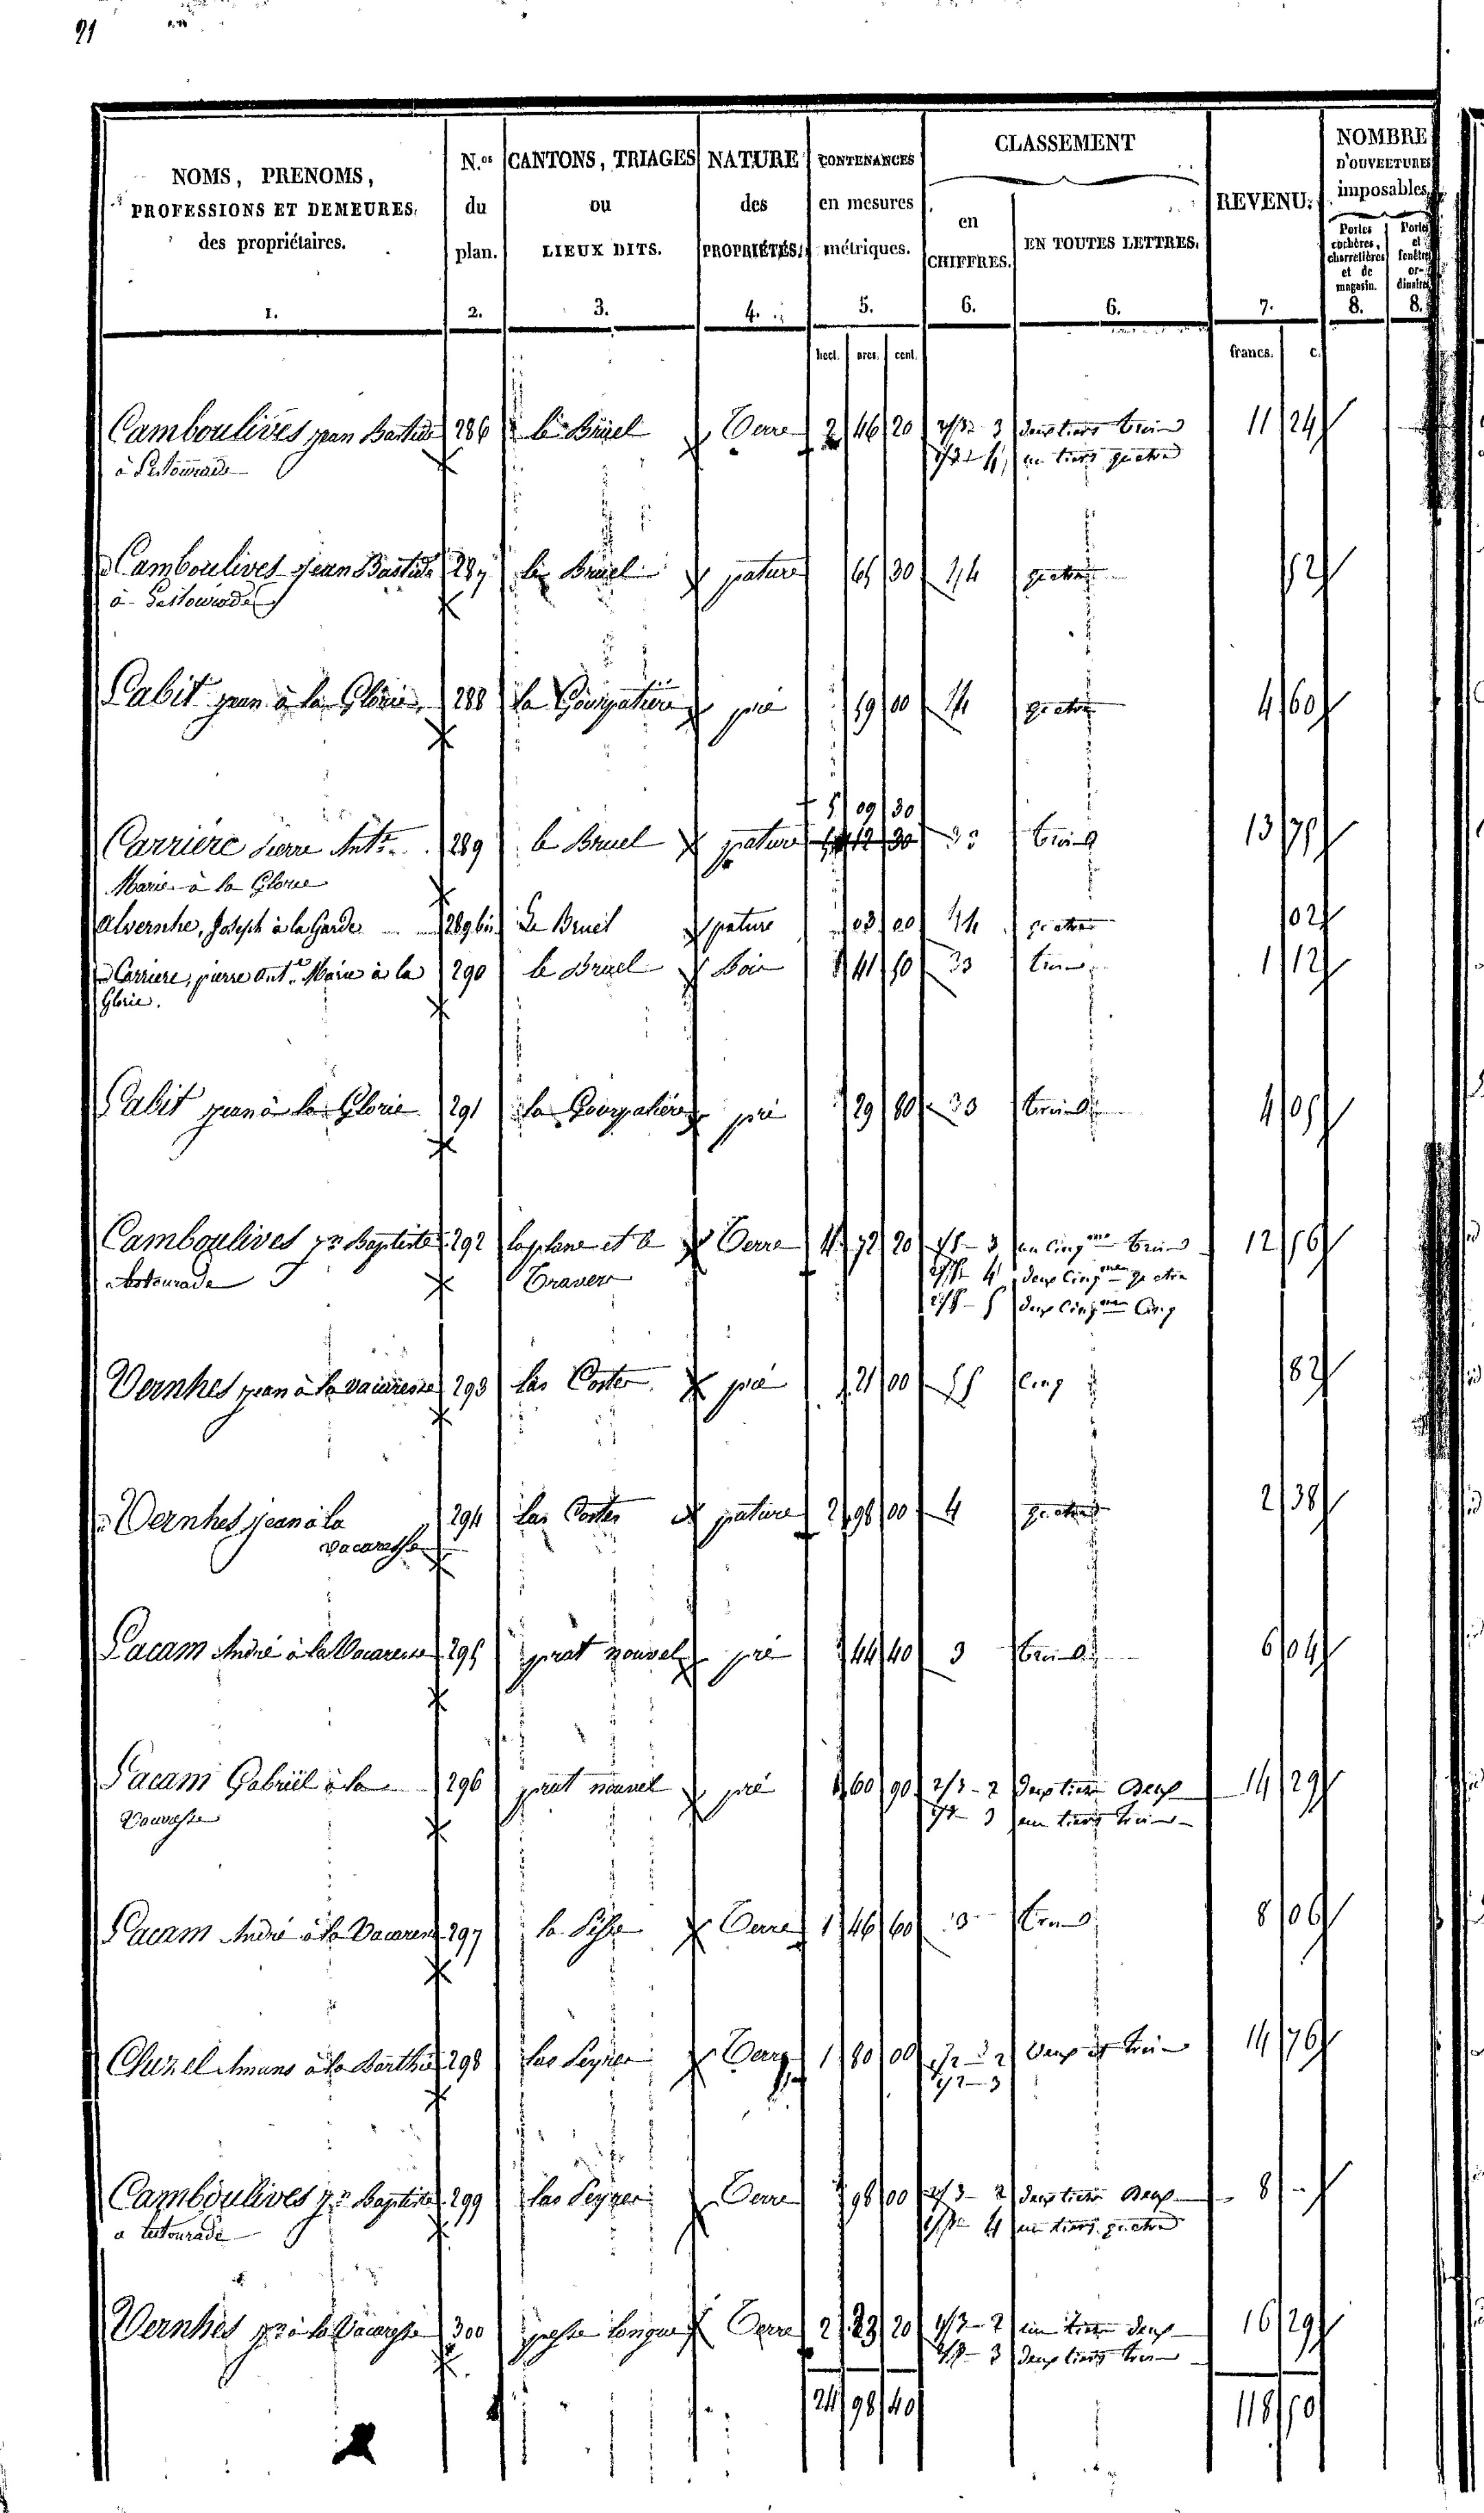 21
NOMS, PRENOMS, PROFESSIONS ET DEMEURES, des propriétaires. 1.
N.os du plan. 2.
CANTONS, TRIAGES ou LIEUX DITS. 3.
NATURE des PROPRIÉTÉS. 4.
CONTENANCES en mesures métriques. 5.
CLASSEMENT
en CHIFFRES. 6.
EN TOUTES LETTRES. 6.
REVENU. 7.
NOMBRE D'OUVERTURES imposables,
Portes cochères, charretières et de magasin. 8.
Portes et fenêtres ordinaires 8.
hect. ares. cent. francs. c.
Camboulives jean Bastide 286 le Bruel Terre 2 46 20 2/3 - 3 deux tiers trois 11 24
à Lestourade 1/3 - 4 un tiers quatre
Camboulives jean Bastide 287 le Bruel pature 65 30 4 quatre 52
à Lestourade
Cabit jean à la Glorie 288 la Gourgatière pré 59 00 4 quatre 4 60
5 09 30
Carrière pierre Ant.ne 289 le Bruel pature 12 30 3 trois 13 75
Marie à la Glorie
Alvernhe, Joseph à la Garde 289 bis Le Bruel pature 03 00 4 quatre 02
Carriere, pierre ant.e Marie à la 290 le Bruel Bois 41 50 3 trois 1 12
Glorie.
Cabit jean à la Glorie 291 la Gourgatière pré 29 80 3 trois 4 05
Camboulives jn Baptiste 292 laplane et le Terre 4 72 20 1/5 - 3 un cinq.me trois 12 56
à Lestourade Travers 2/5 4 deux cinq.mes quatre
2/5 - 5 deux cinq.mes cinq
Vernhes jean à la vacaresse 293 las Costes pré 21 00 5 cinq 82
Vernhes jean à la 294 las Costes pature 2 98 00 4 quatre 2 38
vacaresse
Cacam André à la Vacaresse 295 prat nouvel pré 44 40 3 trois 6 04
Cacam Gabriël à la 296 prat nouvel pré 60 90 2/3 - 2 deux tiers deux 14 29
Vacaresse 1/3 - 3 un tiers trois
Cacam André à la Vacaresse 297 Terre 1 46 60 3 trois 8 06
Cluzel Amans à la Barthe 298 las Peyres Terre 1 80 00 1/2 - 2 deux et trois 14 76
1/2 - 3
Camboulives jn Baptiste 299 las Peyres Terre 98 00 2/3 - 2 deux tiers deux 8 -
à Lestourade 1/3 - 4 un tiers quatre
Vernhes jn à la Vacaresse 300 longue Terre 2 23 20 1/3 - 2 un tiers deux 16 29
2/3 - 3 deux tiers trois
24 98 40 118 50